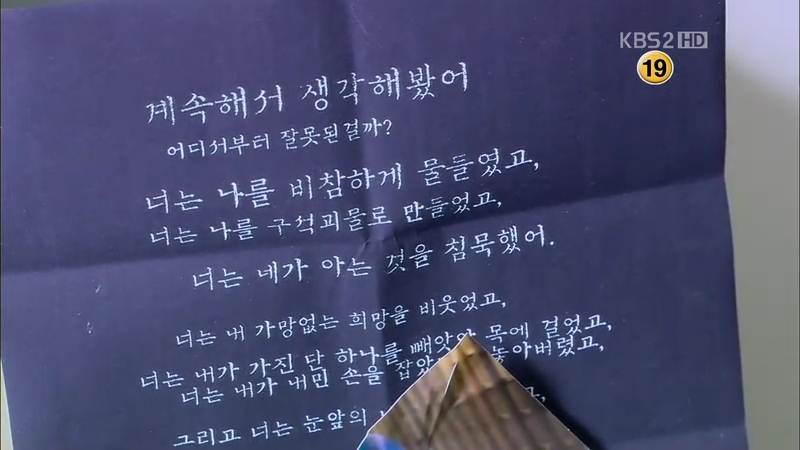 KBS2 HD
19
계속해서 생각해봤어
어디서부터 잘못된걸까?
너는 나를 비참하게 물들였고,
너는 나를 구석괴물로 만들었고,
너는 네가 아는 것을 침묵했어.
너는 내 가망없는 희망을 비웃었고,
너는 내가 가진 단 하나를 빼앗아 목에 걸었고,
너는 내가 내민 손을 잡았 놓아버렸고,
그리고 너는 눈앞의